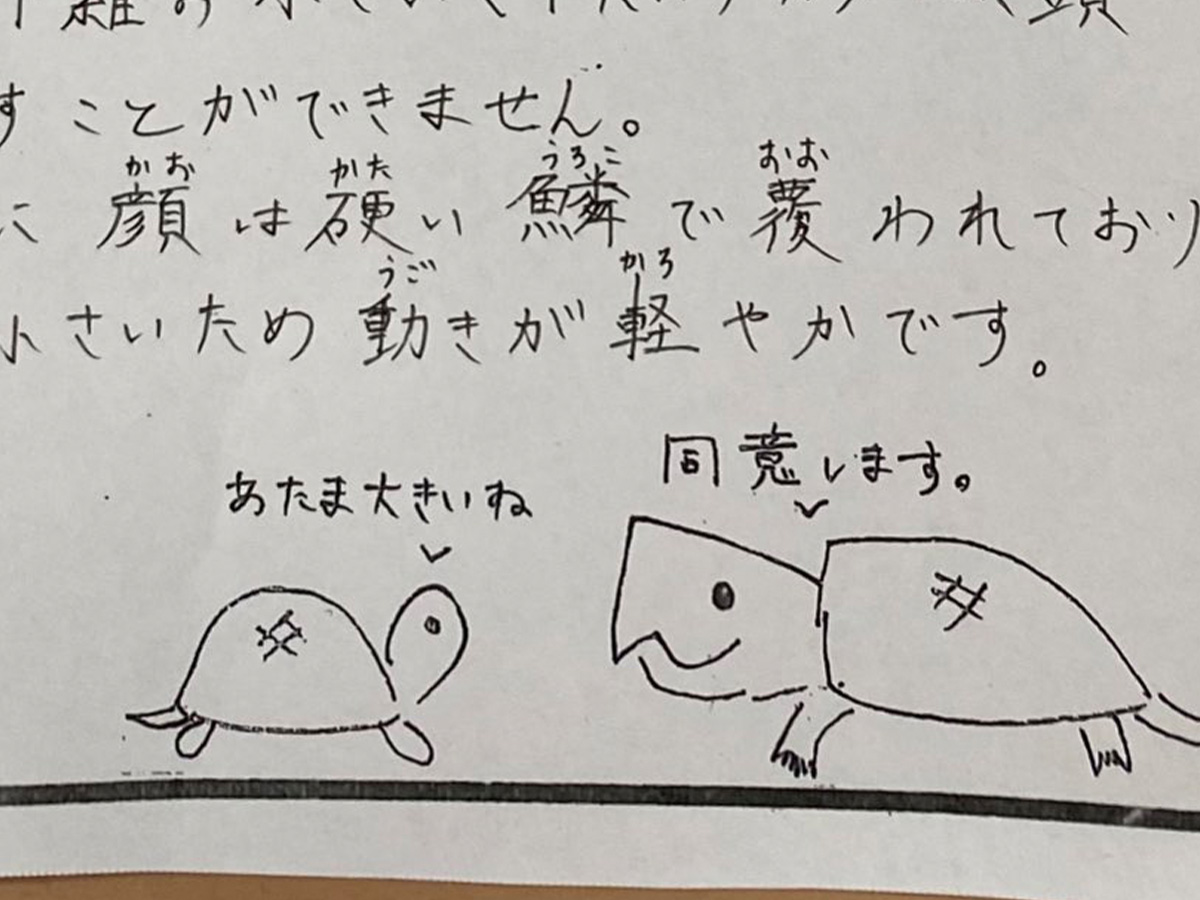 すことができません。
に顔は硬い鱗で覆われており
かお かた うろこ おお
小さいため動きが軽やかです。
うご かろ
あたま大きいね
同意します。